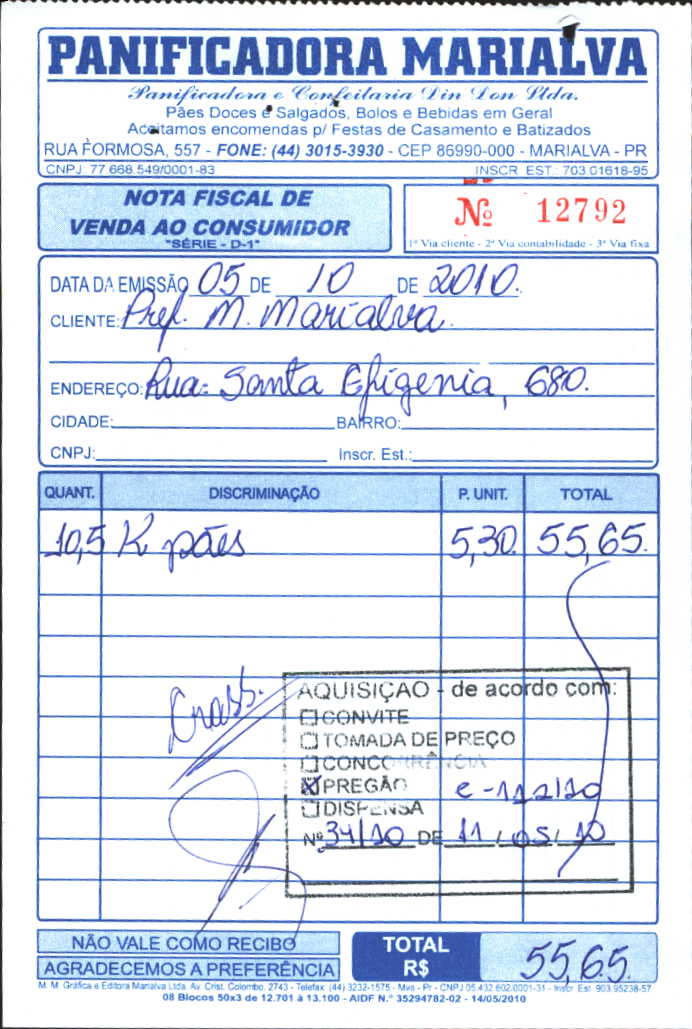 PANIFICADORA MARIALVA
Panificadora e Confeitaria Din Don Ltda.
Pães Doces e Salgados, Bolos e Bebidas em Geral
Aceitamos encomendas p/ Festas de Casamento e Batizados
RUA FORMOSA, 557 - FONE: (44) 3015-3930 - CEP 86990-000 - MARIALVA - PR
CNPJ. 77.668.549/0001-83 INSCR. EST.: 703.01618-95
NOTA FISCAL DE
VENDA AO CONSUMIDOR
"SÉRIE - D-1"
Nº 12792
1ª Via cliente - 2ª Via contabilidade - 3ª Via fixa
DATA DA EMISSÃO 05 DE 10 DE 2010.
CLIENTE: Pref. M. Marialva.
ENDEREÇO: Rua: Santa Efigenia, 680.
CIDADE: BAIRRO:
CNPJ.: Inscr. Est.:
QUANT. DISCRIMINAÇÃO P. UNIT. TOTAL
10,5 K pães 5,30. 55,65.
AQUISIÇAO - de acordo com:
CONVITE
TOMADA DE PREÇO
CONCORRÊNCIA
PREGÃO e-112/10
DISPENSA
Nº 34/10 DE 11 / 05 / 10
NÃO VALE COMO RECIBO
AGRADECEMOS A PREFERÊNCIA
TOTAL
R$ 55,65.
M. M. Gráfica e Editora Marialva Ltda. Av. Crist. Colombo, 2743 - Telefax: (44) 3232-1575 - Mva - Pr - CNPJ 05.432.602.0001-31 - Inscr. Est. 903.95238-57
08 Blocos 50x3 de 12.701 à 13.100 - AIDF N.° 35294782-02 - 14/05/2010